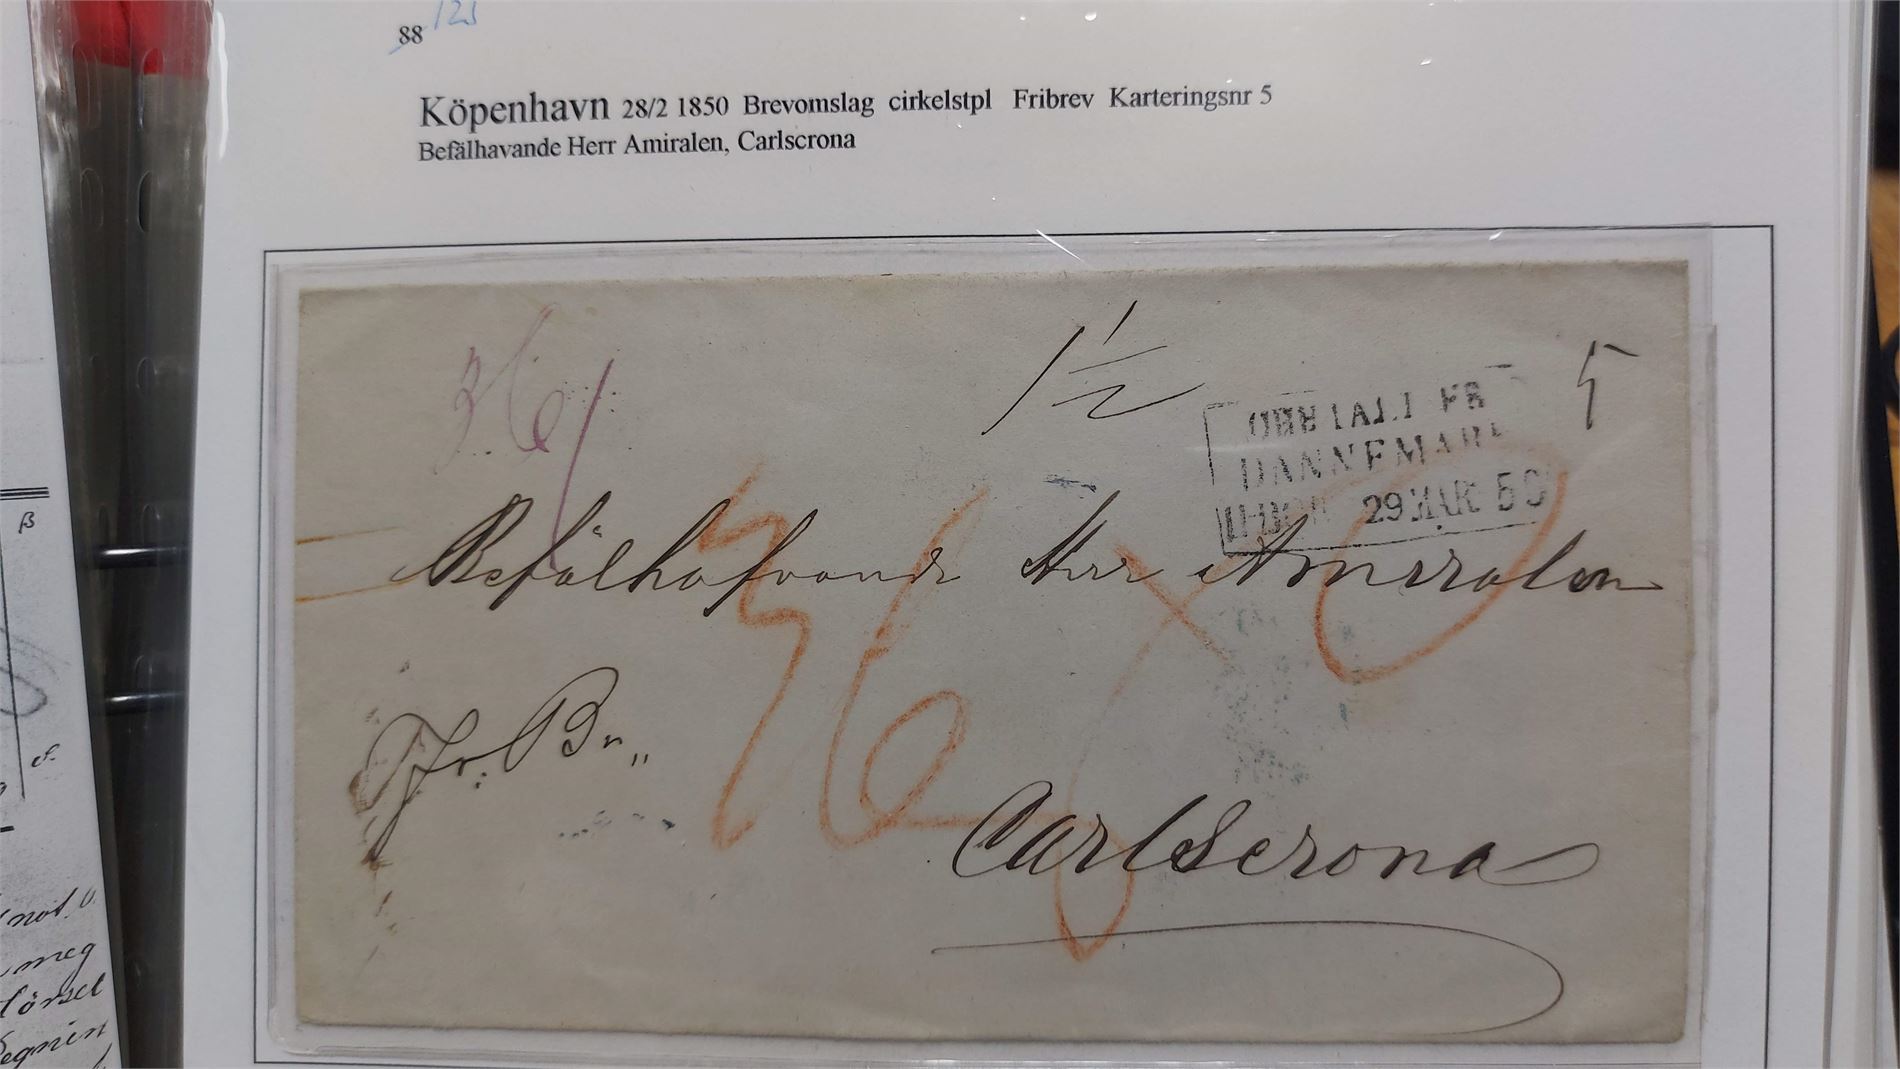 88 125
Köpenhavn 28/2 1850 Brevomslag cirkelstpl Fribrev Karteringsnr 5
Befälhavande Herr Amiralen, Carlscrona
36/
1½
5
OBETALT FR
DANNEMARK
29 MAR 50
Befälhafvande Herr Amiralen
36
Fr. Br.
Carlscrona
β
not. v.
meg